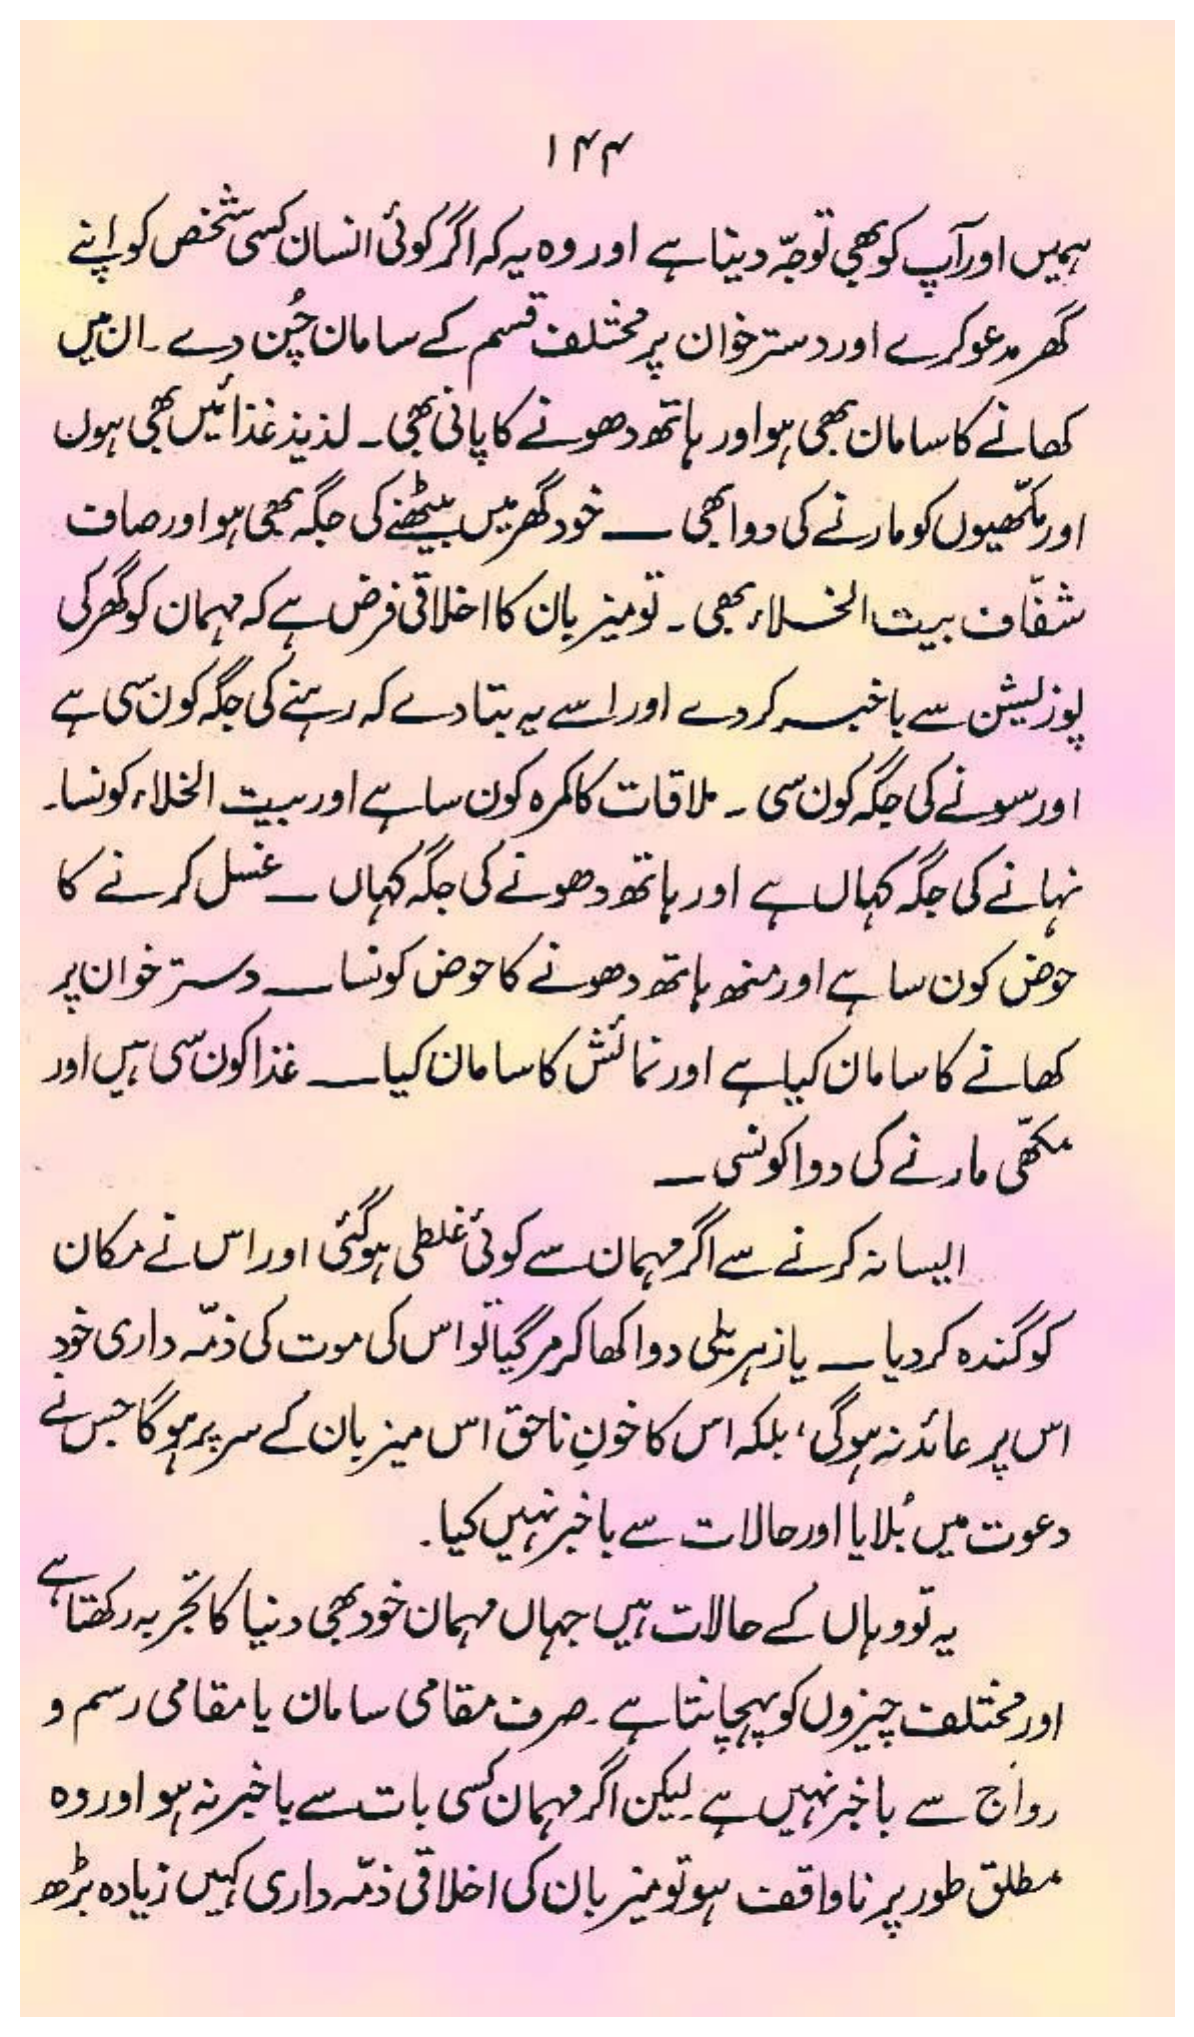 ۱۴۴
ہمیں اور آپ کو بھی توجّہ دینا ہے اور وہ یہ کہ اگر کوئی انسان کسی شخص کو اپنے
گھر مدعو کرے اور دسترخوان پر مختلف قسم کے سامان چُن دے ۔ ان میں
کھانے کا سامان بھی ہو اور ہاتھ دھونے کا پانی بھی ۔ لذیذ غذائیں بھی ہوں
اور مکّھیوں کو مارنے کی دوا بھی ــ خود گھر میں بیٹھنے کی جگہ بھی ہو اور صاف
شفّاف بیت الخلاء بھی ۔ تو میزبان کا اخلاقی فرض ہے کہ مہمان کو گھر کی
پوزیشن سے باخبر کردے اور اسے یہ بتا دے کہ رہنے کی جگہ کون سی ہے
اور سونے کی جگہ کون سی ۔ ملاقات کا کمرہ کون سا ہے اور بیت الخلاء کونسا۔
نہانے کی جگہ کہاں ہے اور ہاتھ دھونے کی جگہ کہاں ــ غسل کرنے کا
حوض کون سا ہے اور منھ ہاتھ دھونے کا حوض کونسا ــ دسترخوان پر
کھانے کا سامان کیا ہے اور نمائش کا سامان کیا ــ غذا کون سی ہیں اور
مکھّی مارنے کی دوا کونسی ــ
ایسا نہ کرنے سے اگر مہمان سے کوئی غلطی ہوگئی اور اس نے مکان
کو گندہ کردیا ــ یا زہریلی دوا کھا کر مر گیا تو اس کی موت کی ذمّہ داری خود
اس پر عائد نہ ہوگی، بلکہ اس کا خونِ ناحق اس میزبان کے سر پر ہوگا جس نے
دعوت میں بُلایا اور حالات سے باخبر نہیں کیا۔
یہ تو وہاں کے حالات ہیں جہاں مہمان خود بھی دنیا کا تجربہ رکھتا ہے
اور مختلف چیزوں کو پہچانتا ہے ۔ صرف مقامی سامان یا مقامی رسم و
رواج سے باخبر نہیں ہے۔ لیکن اگر مہمان کسی بات سے باخبر نہ ہو اور وہ
مطلق طور پر ناواقف ہو تو میزبان کی اخلاقی ذمّہ داری کہیں زیادہ بڑھ